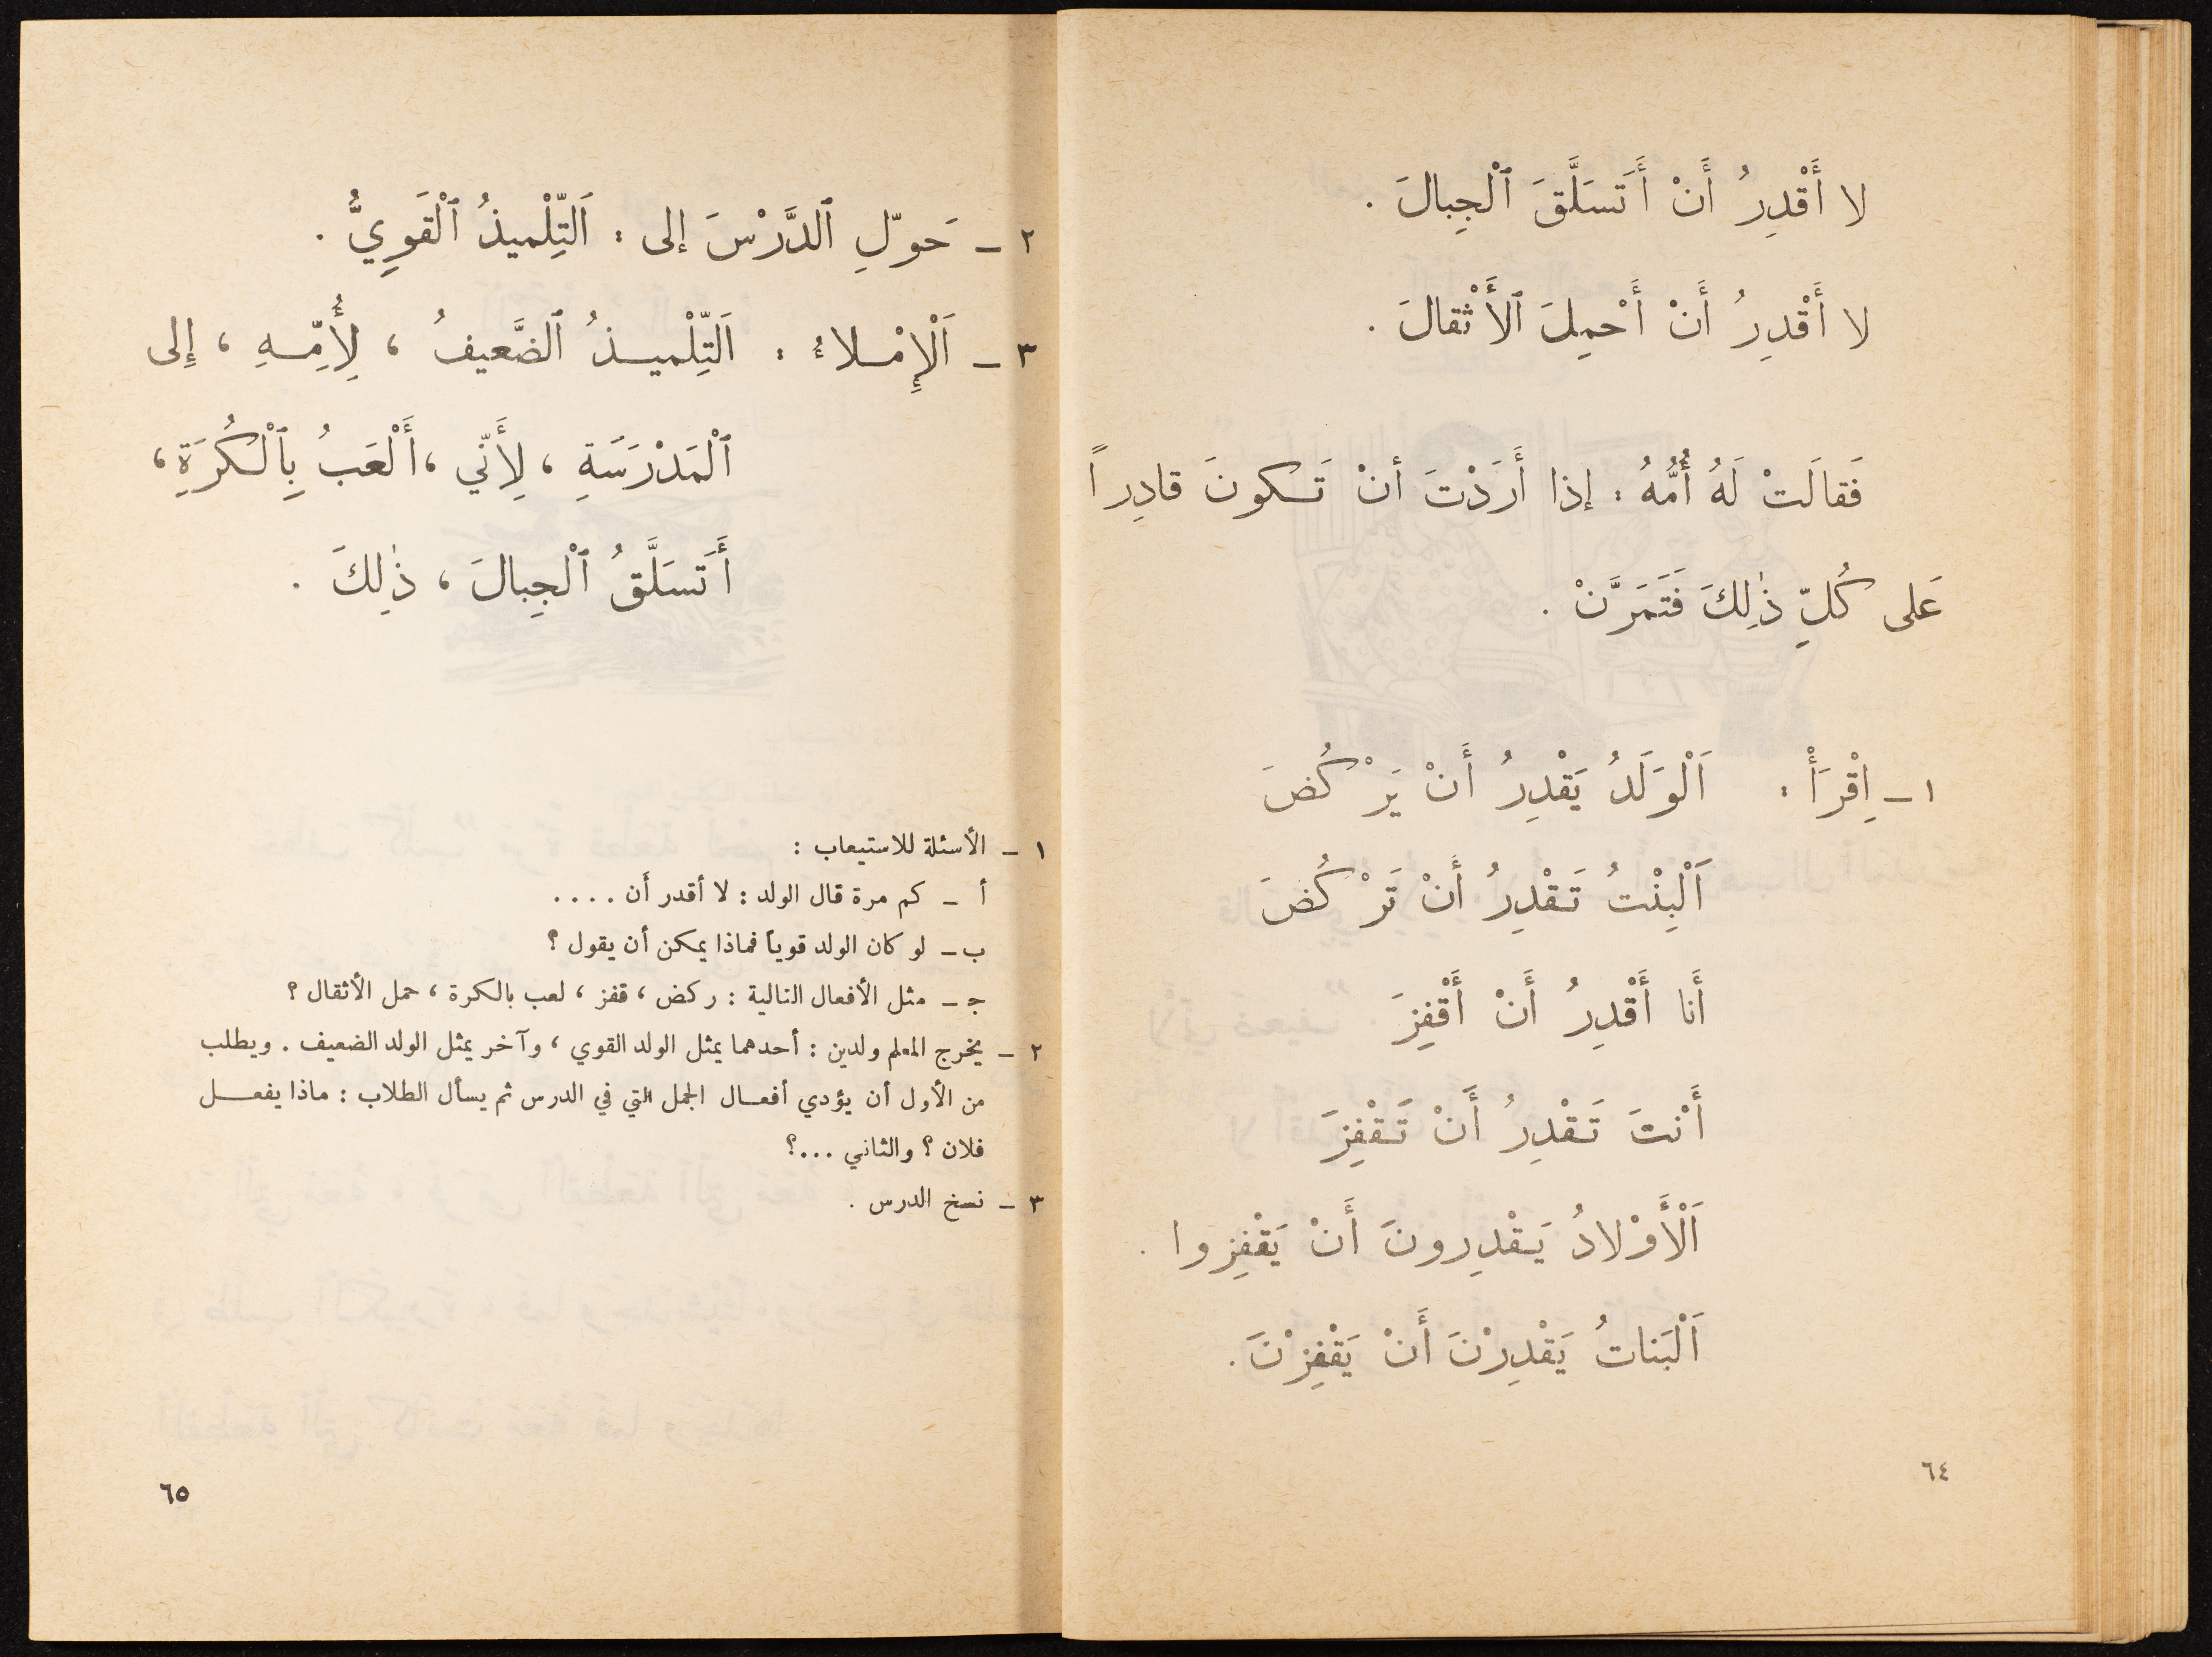 لا أَقْدِرُ أَنْ أَتَسَلَّقَ ٱلْجِبالَ .
لا أَقْدِرُ أَنْ أَحْمِلَ ٱلأَثْقالَ .
فَقالَتْ لَهُ أُمُّهُ : إذا أَرَدْتَ أنْ تَكونَ قادِراً
عَلى كُلِّ ذٰلِكَ فَتَمَرَّنْ .
١ – اِقْرَأْ : اَلْوَلَدُ يَقْدِرُ أَنْ يَرْكُضَ
اَلْبِنْتُ تَقْدِرُ أَنْ تَرْكُضَ
أَنا أَقْدِرُ أَنْ أَقْفِزَ
أَنْتَ تَقْدِرُ أَنْ تَقْفِزَ
اَلْأَوْلادُ يَقْدِرونَ أَنْ يَقْفِزوا .
اَلْبَناتُ يَقْدِرْنَ أَنْ يَقْفِزْنَ .
٦٤
٢ – حَوِّلِ ٱلدَّرْسَ إلى : اَلتِّلْميذُ ٱلْقَوِيُّ .
٣ – اَلْإِمْلاءُ : اَلتِّلْميذُ ٱلضَّعيفُ ، لِأُمِّهِ ، إِلى
ٱلْمَدْرَسَةِ ، لِأَنّي ، أَلْعَبُ بِٱلْكُرَةِ ،
أَتَسَلَّقُ ٱلْجِبالَ ، ذٰلِكَ .
١ – الأسئلة للاستيعاب :
أ – كم مرة قال الولد : لا أقدر أن . . . .
ب – لو كان الولد قوياً فماذا يمكن أن يقول ؟
ج – مثل الأفعال التالية : ركض ، قفز ، لعب بالكرة ، حمل الأثقال ؟
٢ – يخرج المعلم ولدين : أحدهما يمثل الولد القوي ، وآخر يمثل الولد الضعيف . ويطلب
من الأول أن يؤدي أفعال الجمل التي في الدرس ثم يسأل الطلاب : ماذا يفعل
فلان ؟ والثاني ...؟
٣ – نسخ الدرس .
٦٥